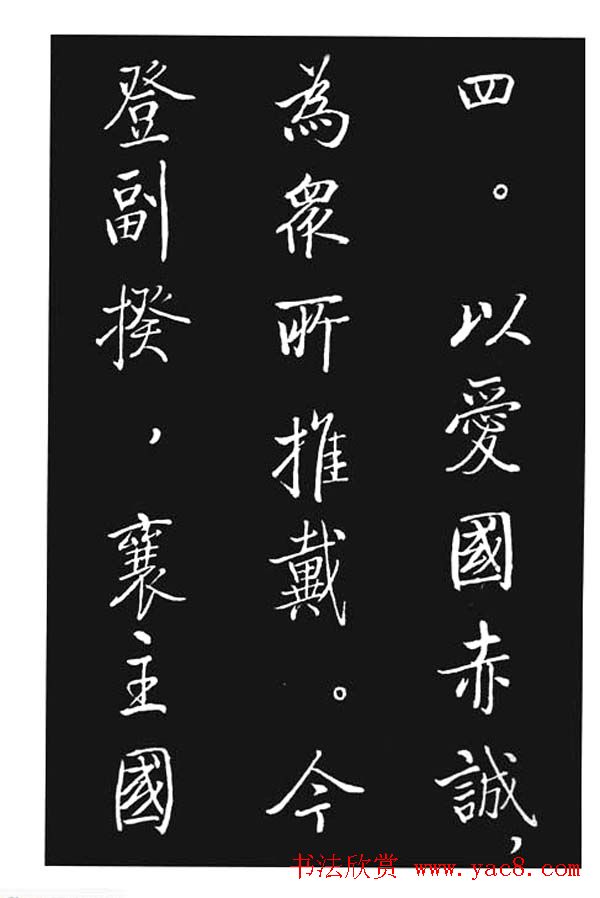 四。以愛國赤誠，
為眾所推戴。今
登副揆，襄主國
书法欣赏 www.yac8.com